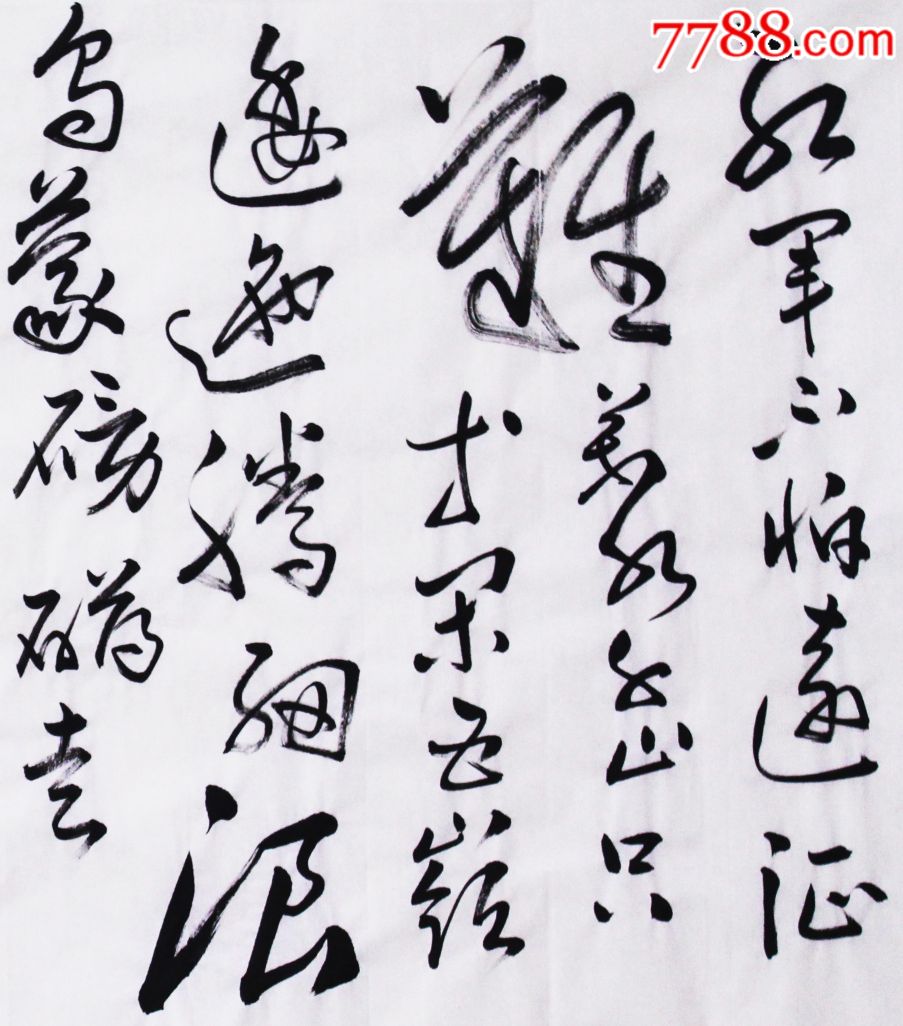 7788.com
红军不怕遠征
難萬水千山只
等闲五嶺
逶迤腾细浪
乌蒙磅礴走